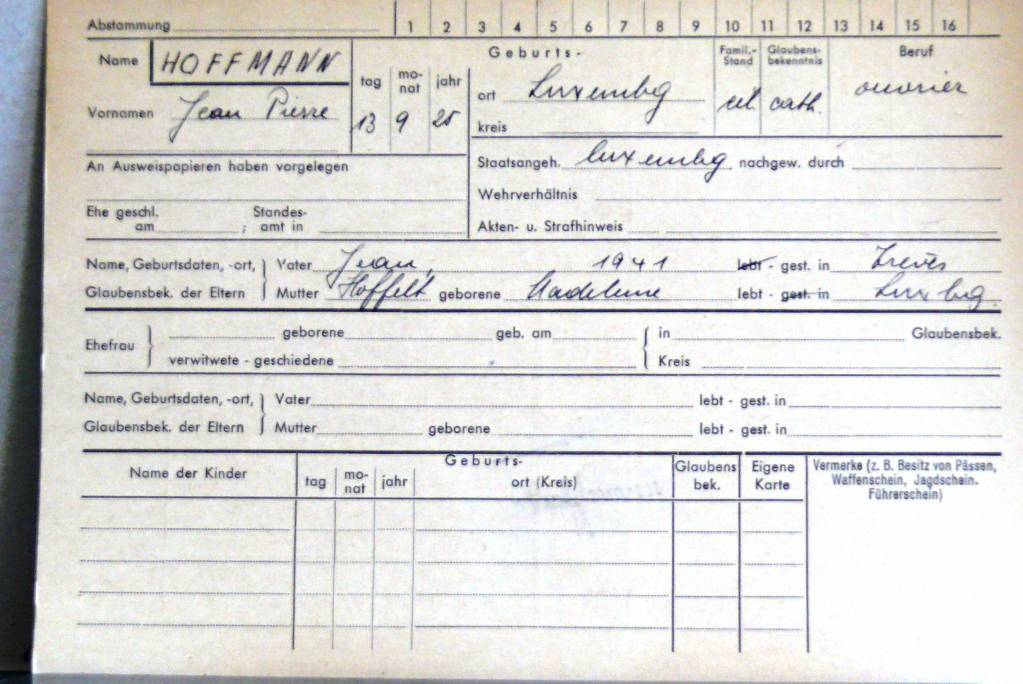 Abstammung 1 2 3 4 5 6 7 8 9 10 11 12 13 14 15 16
Name HOFFMANN
Vornamen Jean Pierre
tag monat jahr
13 9 25
Geburts-
ort Luxembg
kreis
Famil.-Stand
cél.
Glaubens-bekenntnis
cath.
Beruf
ouvrier
An Ausweispapieren haben vorgelegen
Staatsangeh. luxembg. nachgew. durch
Wehrverhältnis
Ehe geschl. am ; Standesamt in
Akten- u. Strafhinweis
Name, Geburtsdaten, -ort, Vater Jean, 1941 lebt - gest. in Trèves
Glaubensbek. der Eltern Mutter Hoffelt geborene Madeleine lebt - gest. in Luxbg.
Ehefrau geborene geb. am in Glaubensbek.
verwitwete - geschiedene Kreis
Name, Geburtsdaten, -ort, Vater lebt - gest. in
Glaubensbek. der Eltern Mutter geborene lebt - gest. in
Name der Kinder
Geburts-
tag monat jahr ort (Kreis)
Glaubens bek.
Eigene Karte
Vermerke (z. B. Besitz von Pässen,
Waffenschein, Jagdschein.
Führerschein)